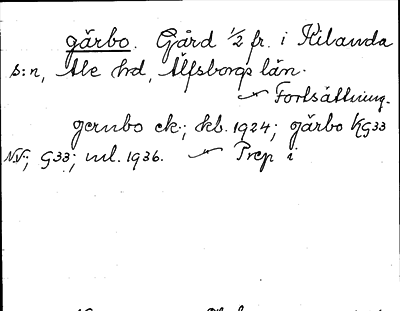 gärbo. Gård 1/2 fr. i Kilanda
s:n, Ale hd, Älfsborgs län.
Fortsättning.
gernbo ek.; kb. 1924; gärbo KG33
NV; G33; uul. 1936. Prep i